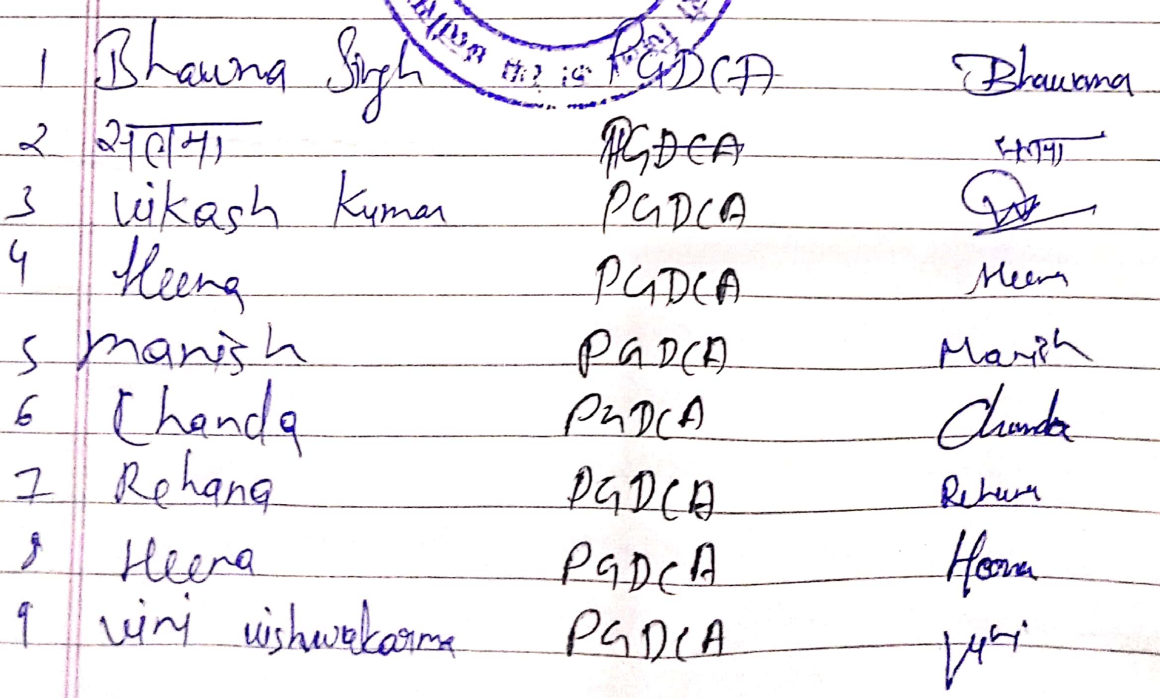 1 Bhawna Singh PGDCA Bhawana
2 PGDCA
3 Vikash Kumar PGDCA
4 Heena PGDCA Heena
5 Manish PGDCA Manish
6 Chanda PGDCA Chanda
7 Rehana PGDCA Rehana
8 Heena PGDCA Heena
9 Vini Vishwakarma PGDCA Vini